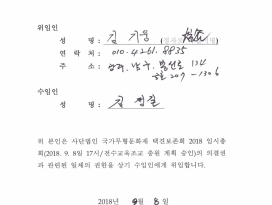 위임인
성 명 : 김 기 (전자서명)
연 락 처 : 010. 4261. 8835
주 소 : 남구, 봉선로 134
207 - 1306
수임인
성 명 : 김
위 본인은 사단법인 국가무형문화재 택견보존회 2018 임시총
회(2018. 9. 8일 17시/전수교육조교 충원 계획 승인)의 의결권
과 관련된 일체의 권한을 상기 수임인에게 위임합니다.
2018년 9월 8일